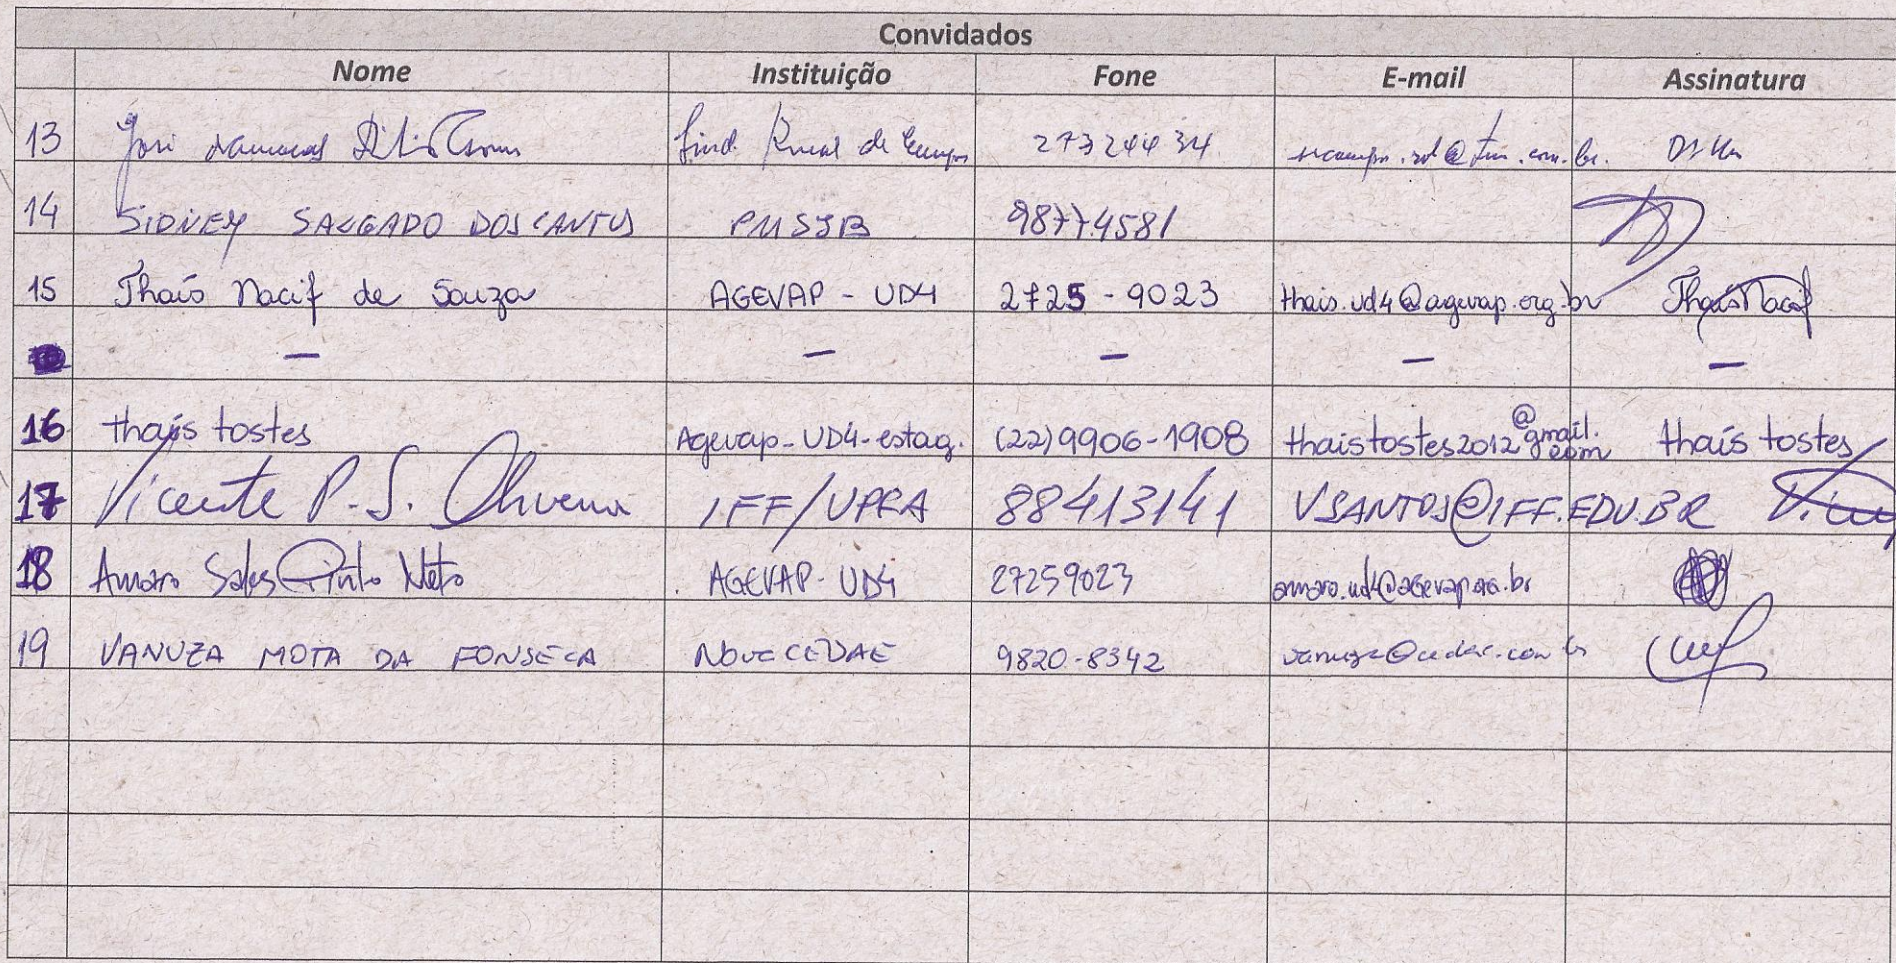 Convidados
Nome Instituição Fone E-mail Assinatura
13 José Sind. Rural de Campos 27324434
14 SIDNEY SALGADO DOS SANTOS PMSJB 98774581
15 Thaís Nacif de Souza AGEVAP - UD4 2725-9023 thais.ud4@agevap.org.br Thaís Nacif
— — — — —
16 thaís tostes Agevap-UD4-estag. (22)9906-1908 thaistostes2012@gmail.com thaís tostes
17 Vicente P. S. Oliveira IFF/UPEA 88413141 VSANTOS@IFF.EDU.BR
18 Amaro Sales Pinto Neto AGEVAP-UD4 27259023 amaro.ud4@agevap.org.br
19 VANUZA MOTA DA FONSECA NOVA CEDAE 9820-8342